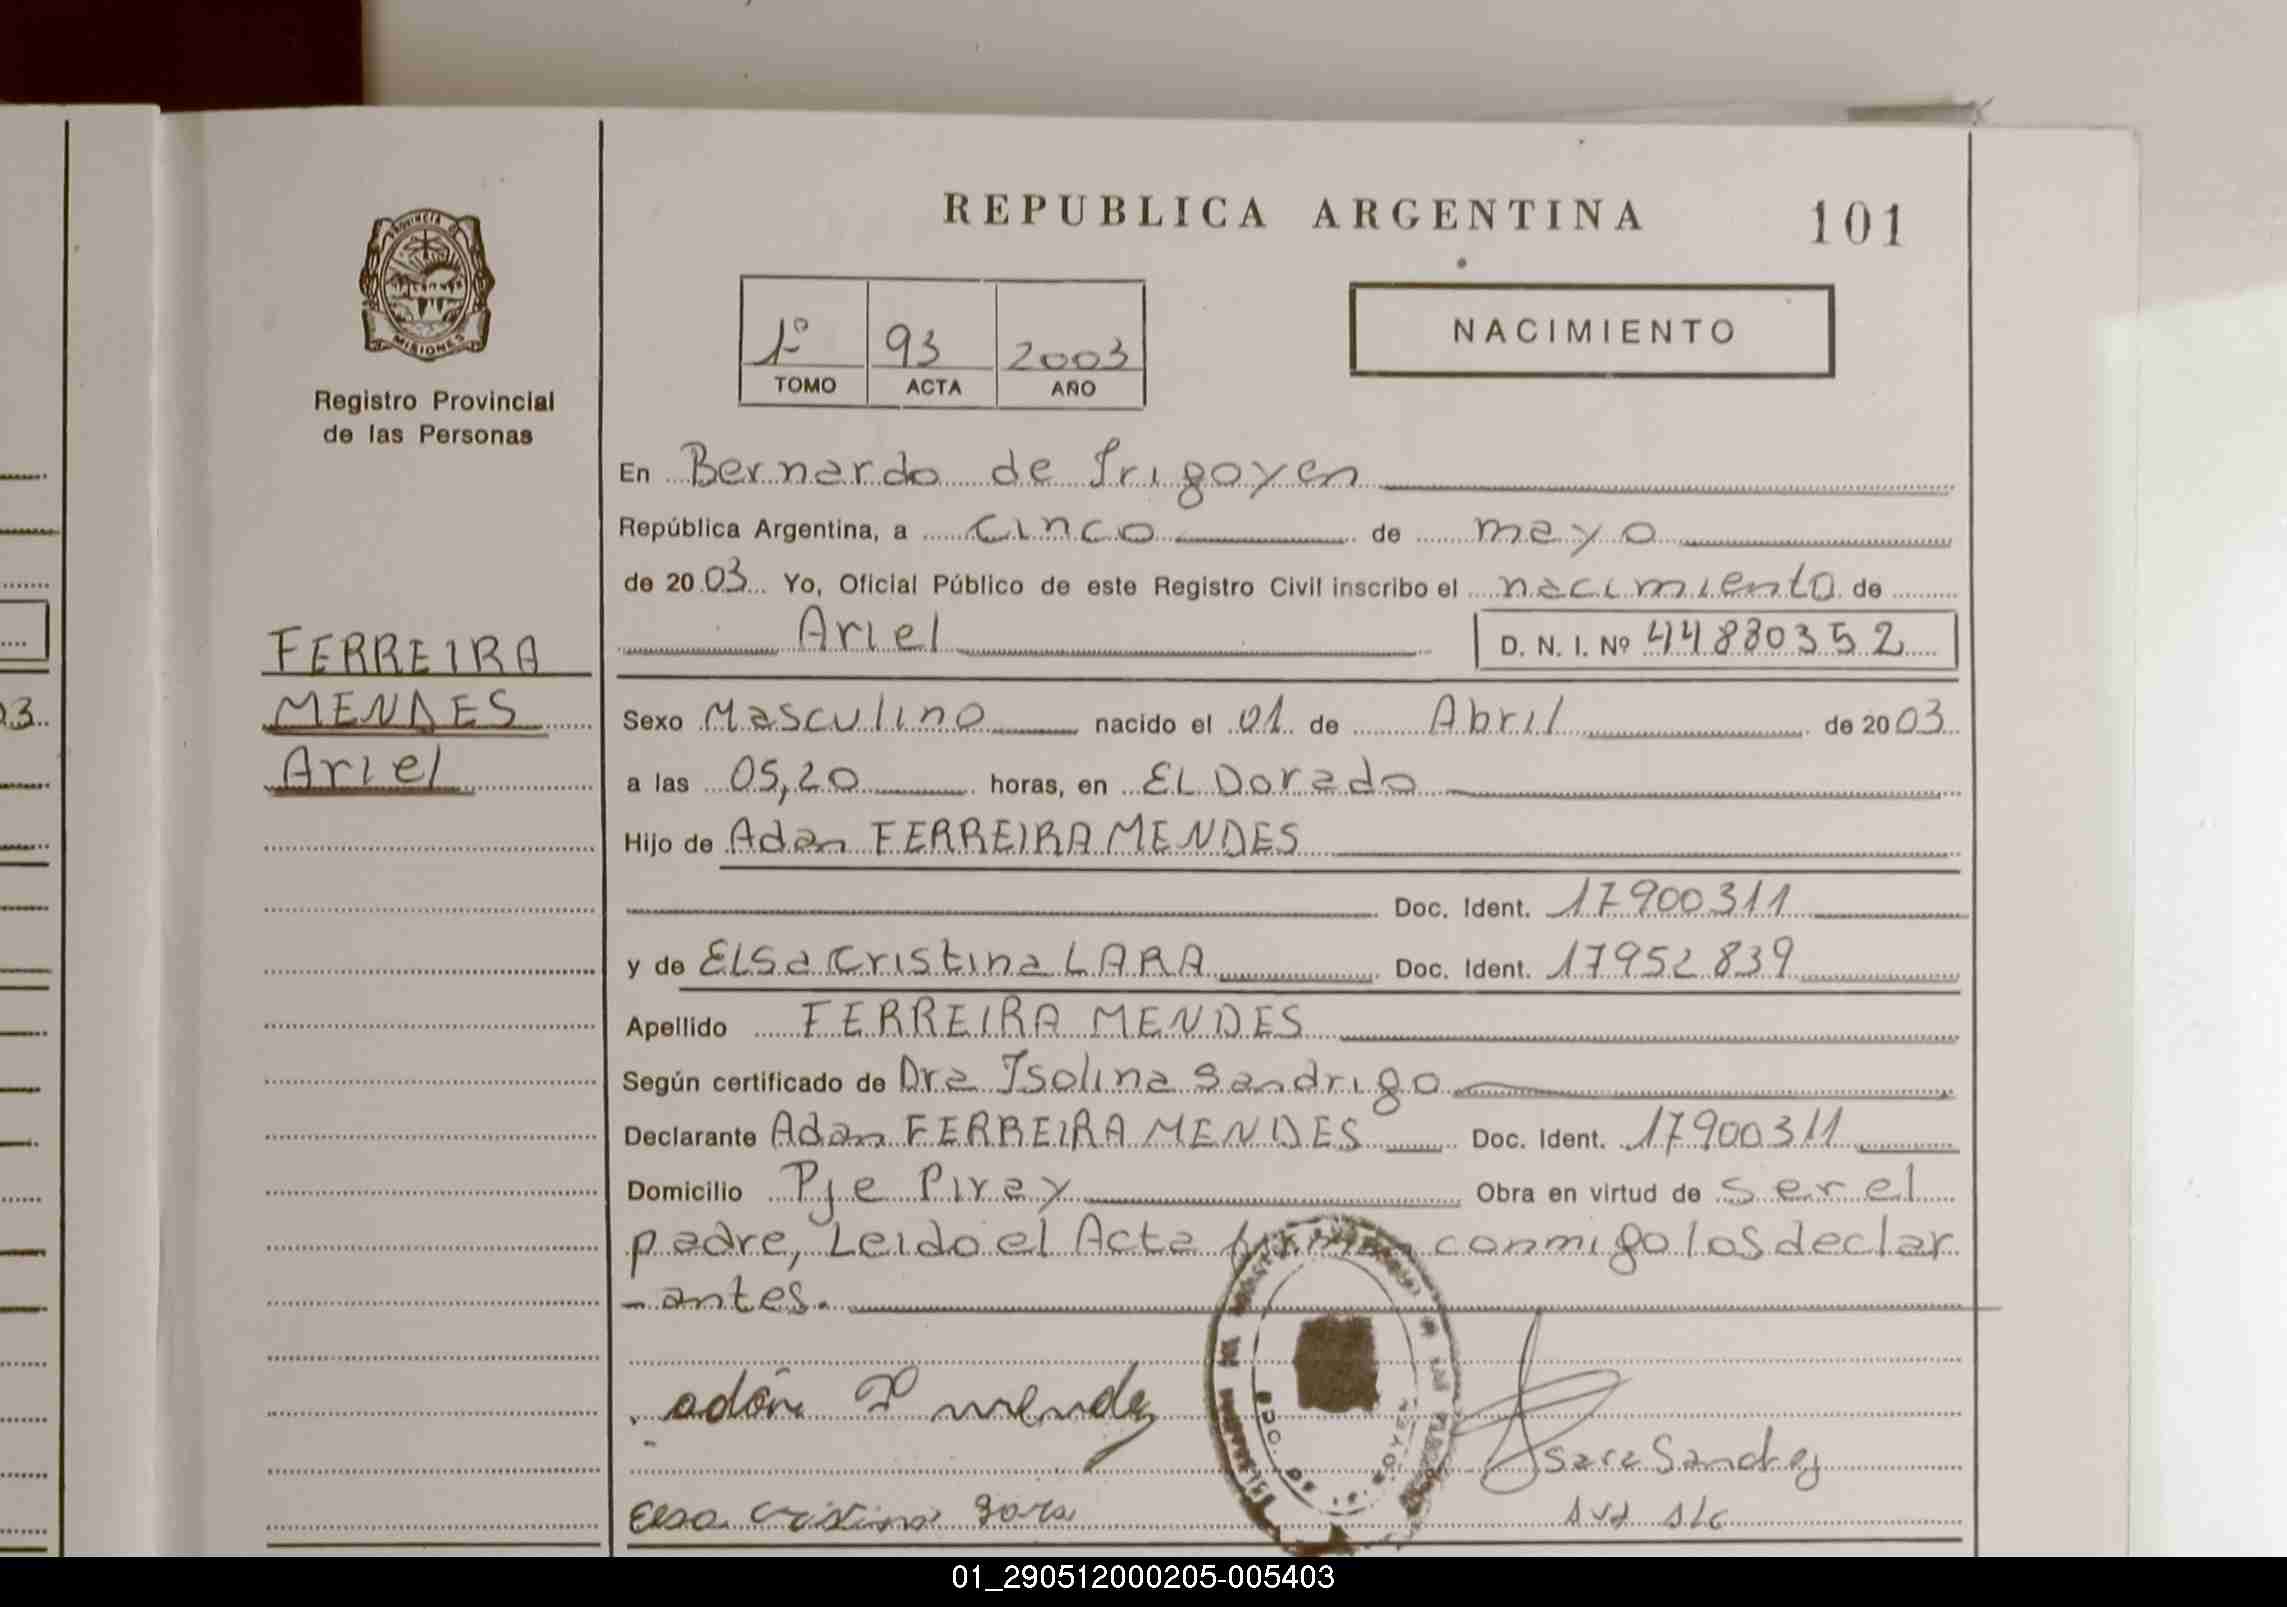 REPUBLICA ARGENTINA
101
PROVINCIA DE
MISIONES
Registro Provincial
de las Personas
1º 93 2003
TOMO ACTA AÑO
NACIMIENTO
En Bernardo de Irigoyen
República Argentina, a cinco de mayo
de 2003 Yo, Oficial Público de este Registro Civil inscribo el nacimiento de
Ariel D. N. I. Nº 44880352
FERREIRA
MENDES
Ariel
03
Sexo Masculino nacido el 01 de Abril de 2003
a las 05,20 horas, en EL Dorado
Hijo de Adan FERREIRA MENDES
Doc. Ident. 17900311
y de ELSa Cristina LARA Doc. Ident. 17952839
Apellido FERREIRA MENDES
Según certificado de Dra Isolina Sandrigo
Declarante Adan FERREIRA MENDES Doc. Ident. 17900311
Domicilio Pje Piray Obra en virtud de ser el
padre, Leido el Acta firman conmigo los declar
-antes.
adán F mendez
Sara Sandrez
Elsa Cristina Lara
01_290512000205-005403